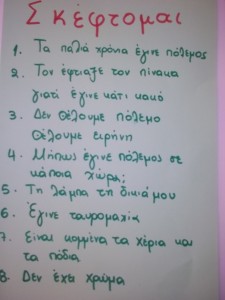 Σκέφτομαι
1. Τα παλιά χρόνια έγινε πόλεμος
2. Τον έφτιαξε τον πίνακα
γιατί έγινε κάτι κακό
3. Δεν θέλουμε πόλεμο
θέλουμε ειρήνη
4. Μήπως έγινε πόλεμος σε
κάποια χώρα;
5. Τη λάμπα τη δικιά μου
6. Έγινε ταυρομαχία
7. Είναι κομμένα τα χέρια και
τα πόδια
8. Δεν έχει χρώμα